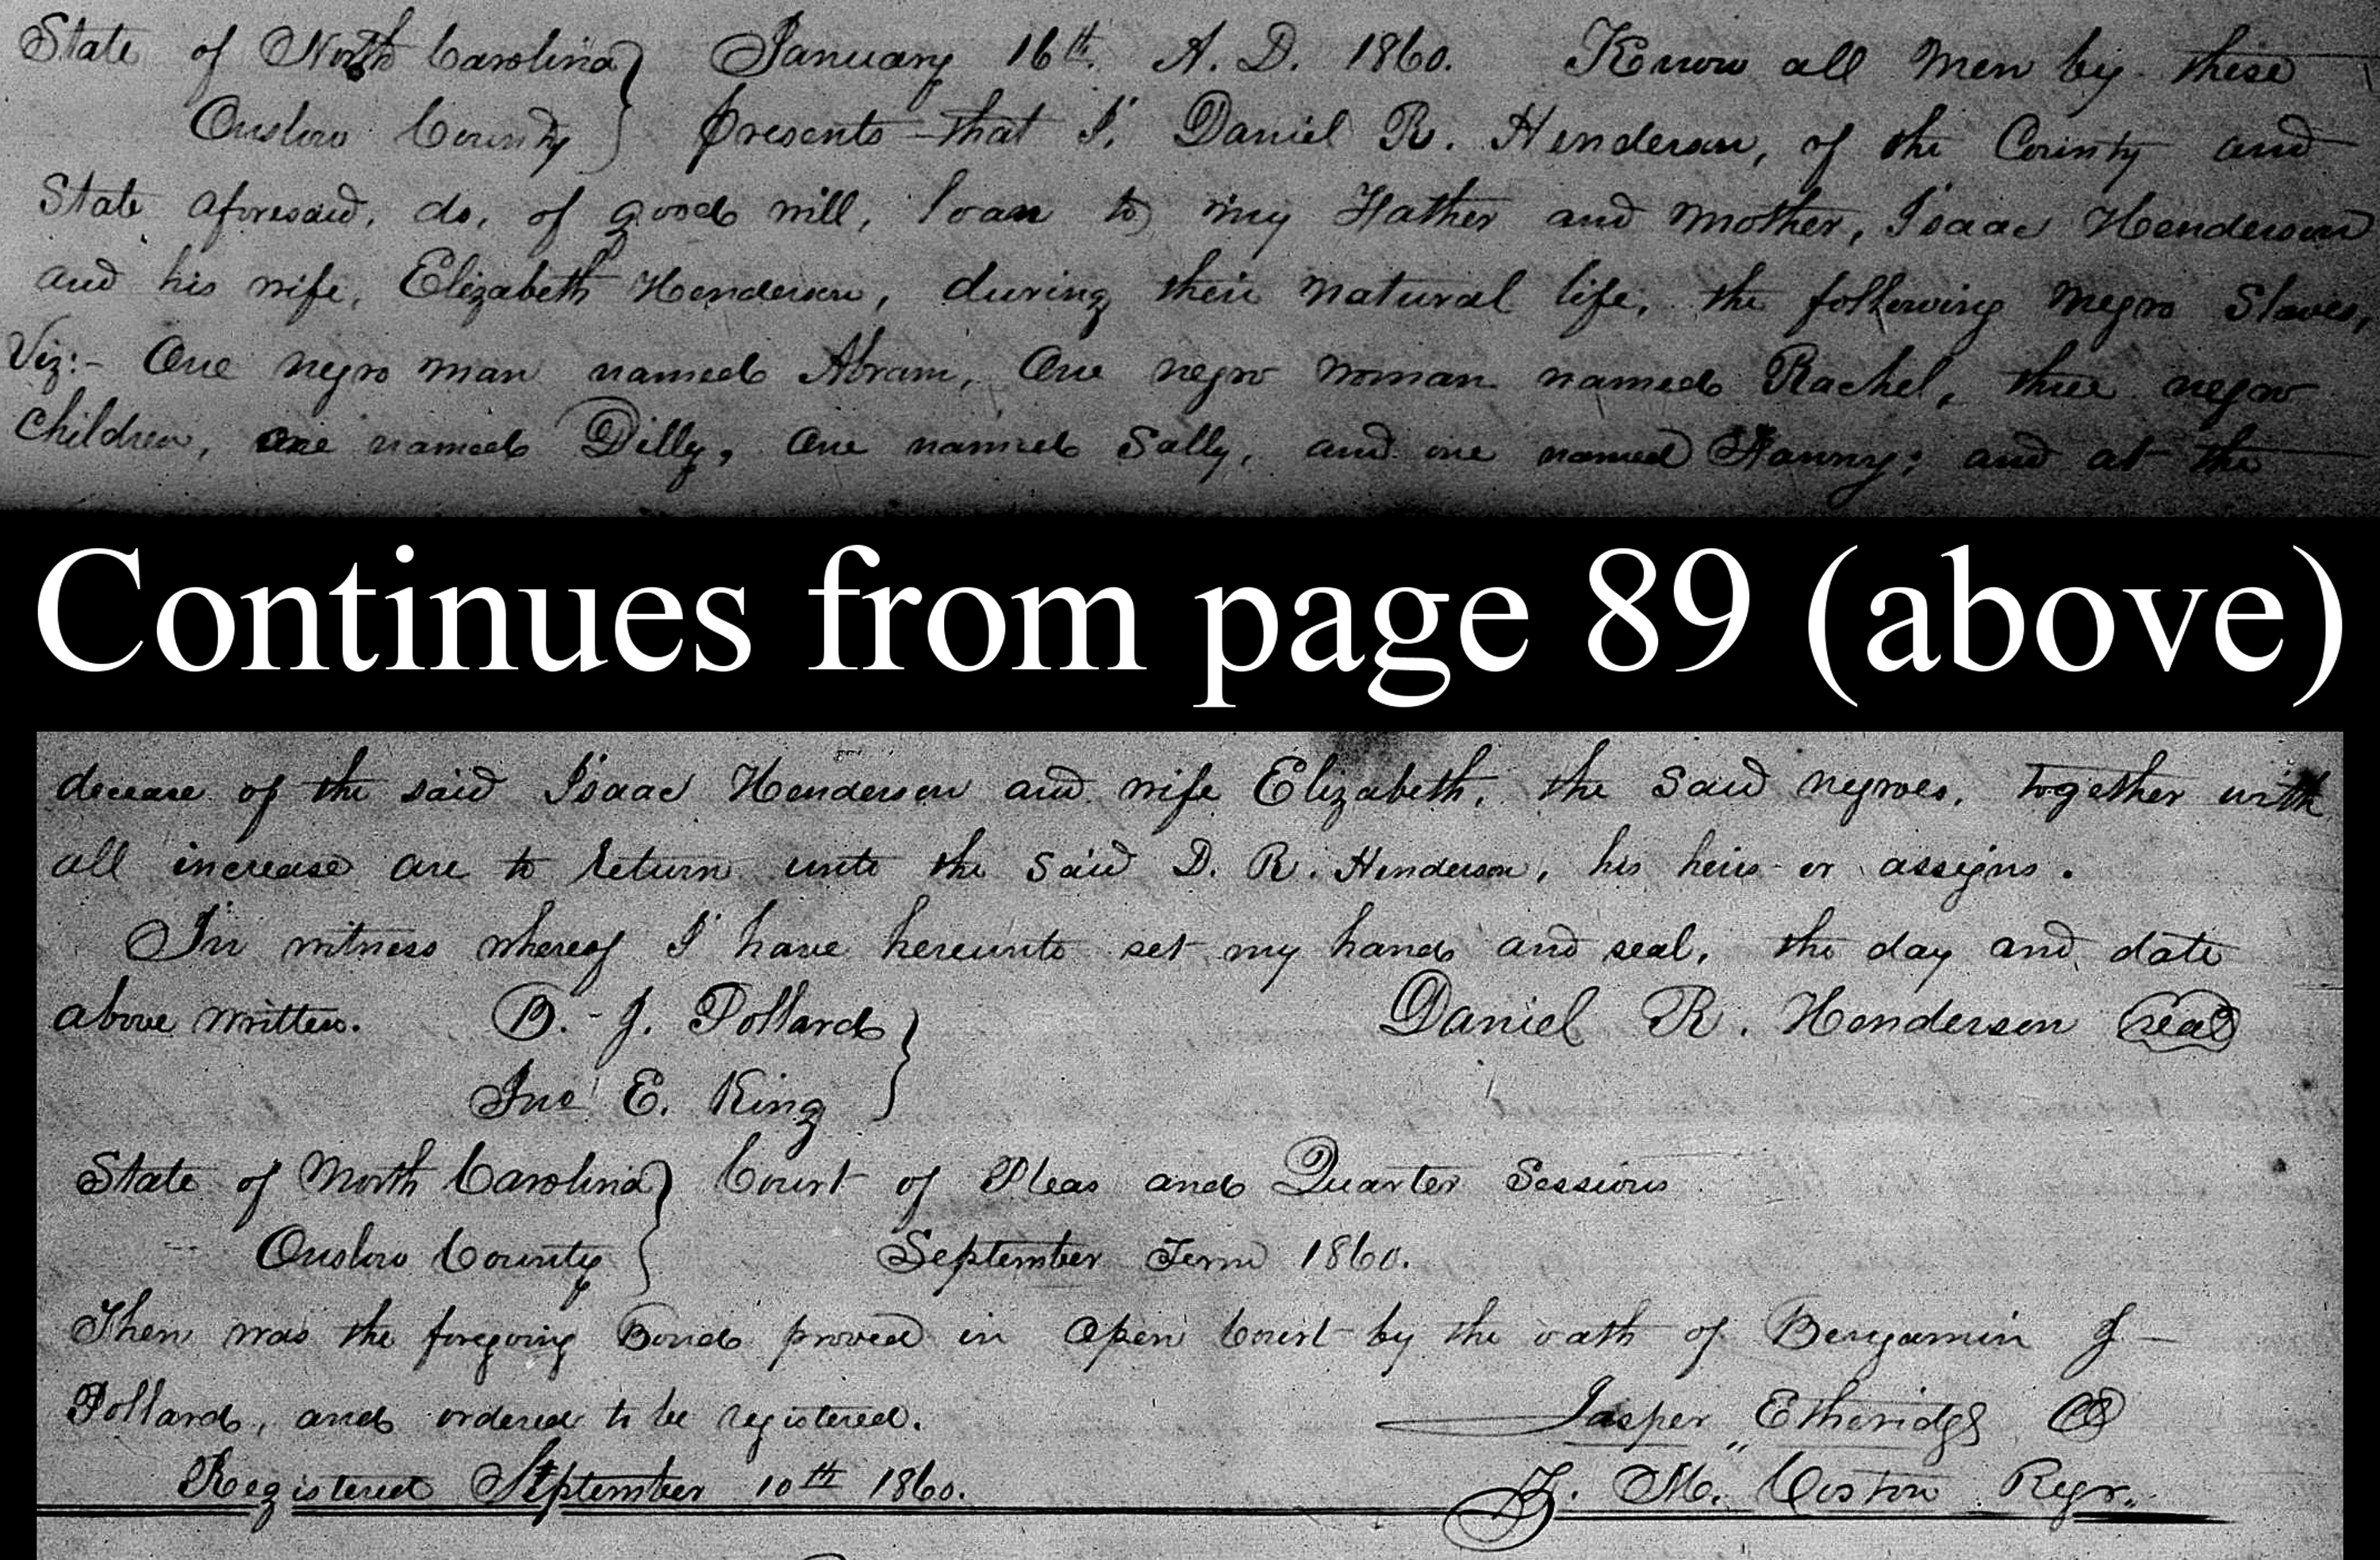 State of North Carolina } January 16th. A. D. 1860. Know all Men by these
Onslow County } presents that I, Daniel R. Henderson, of the County and
State aforesaid, do, of good will, loan to my Father and Mother, Isaac Henderson
and his wife, Elizabeth Henderson, during their natural life, the following negro slaves,
Viz:- One negro man named Abram, One negro woman named Rachel, three negro
Children, one named Dilly, One named Sally, and one named Fanny; and at the
Continues from page 89 (above)
decease of the said Isaac Henderson and wife Elizabeth, the said negroes, together with
all increase are to return unto the said D. R. Henderson, his heirs or assigns.
In witness whereof I have hereunto set my hand and seal, the day and date
above written. B. J. Pollard } Daniel R. Henderson seal
Jno E. King }
State of North Carolina } Court of Pleas and Quarter Sessions
Onslow County } September Term 1860.
Then was the foregoing Bond proved in open Court by the oath of Benjamin J
Pollard, and ordered to be registered. Jasper Etheridge CC
Registered September 10th 1860. M. Coston Regr.